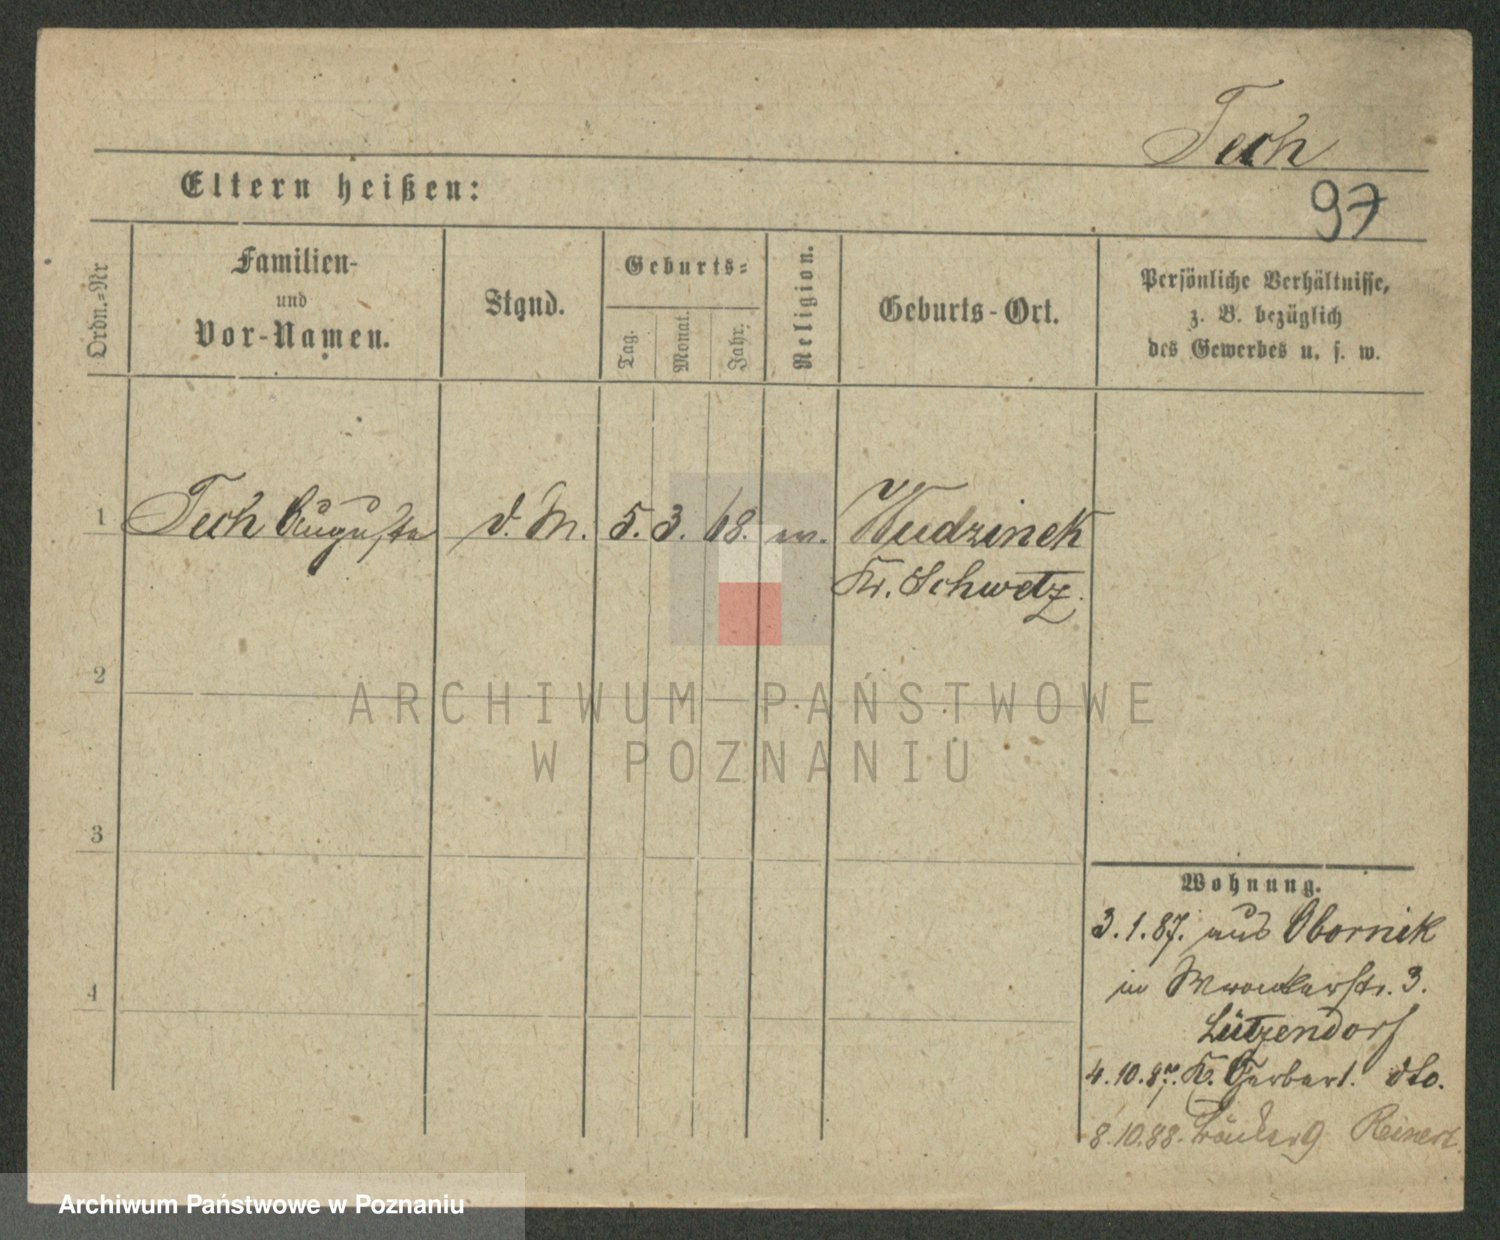 Tech
Eltern heißen:
97
Ordn.=Nr
Familien-
und
Vor-Namen.
Stand.
Geburts=
Tag.
Monat.
Jahr.
Religion.
Geburts-Ort.
Persönliche Verhältnisse,
z. B. bezüglich
des Gewerbes u. s. w.
1 Tech Auguste d. M. 5. 3. 68. ev. Wudzinek
Kr. Schwetz.
2
3
4
Wohnung.
3.1.87. aus Obornik
in Wronkerstr. 3.
Lützendorf
4.10.87. Kl. Gerberst. dto.
8.10.88. 9 Reinert
ARCHIWUM PAŃSTWOWE
W POZNANIU
Archiwum Państwowe w Poznaniu